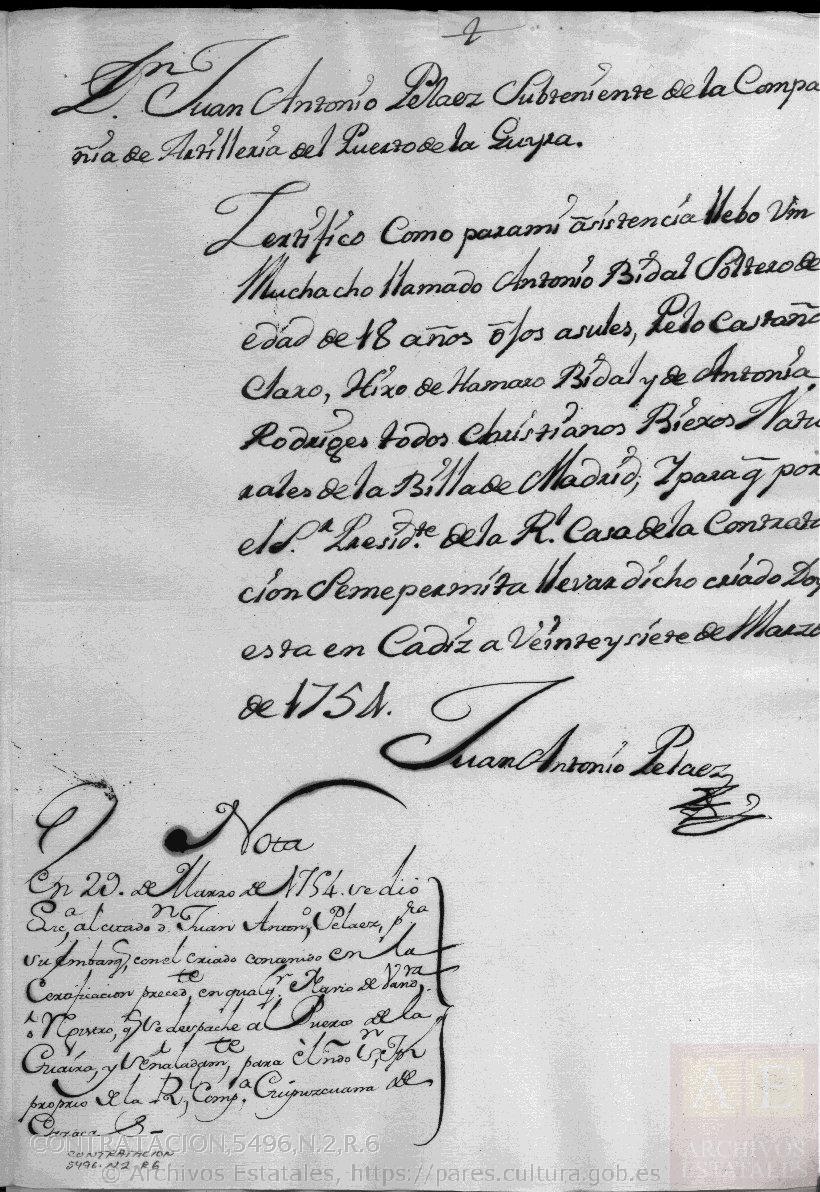 2
Dn. Juan Antonio Pelaez Subteniente de la Compa
ñia de Artilleria del Puerto de la Guyra.
Zertifico Como para mi asistencia llebo Vn
Muchacho llamado Antonio Bidal Soltero de
edad de 18 años ojos asules, Pelo Castaño
Claro, Hixo de Hamaro Bidal y de Antonia
Rodrigẽs todos Christianos Biexos Natu
rales de la Billa de Madrid; Y para q̃ por
el S.r Presid.te de la R.l Casa de la Contrata
cion Se me permita llevar dicho criado Doy
esta en Cadiz a Veinte y siete de Marzo
de 1754.
Juan Antonio Pelaez
Nota
En 29. de Marzo de 1754. se dió
al citado dn. Juan Anton.o Pelaez, pra
su Embarq.e, con el criado contenido en la
Certificacion preced.te, en qualq.r Navio de
Rexistro, q̃ se despache al Puerto de la
Guaira, y Señaladam.te, para el
proprio de la R.l Comp.a Guipuzcuana de
Caracas
CONTRATACION
5496. N.2 R6
CONTRATACION,5496,N.2,R.6
© Archivos Estatales, https://pares.cultura.gob.es
AE
ARCHIVOS
ESTATALES